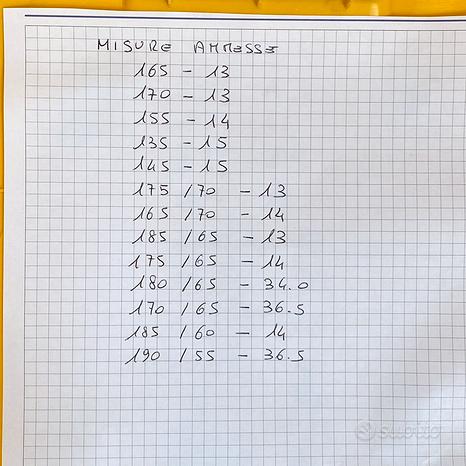 MISURE AMMESSE
165 - 13
170 - 13
155 - 14
135 - 15
145 - 15
175 /70 - 13
165 /70 - 14
185 /65 - 13
175 /65 - 14
180 /65 - 34.0
170 /65 - 36.5
185 /60 - 14
190 /55 - 36.5
subito